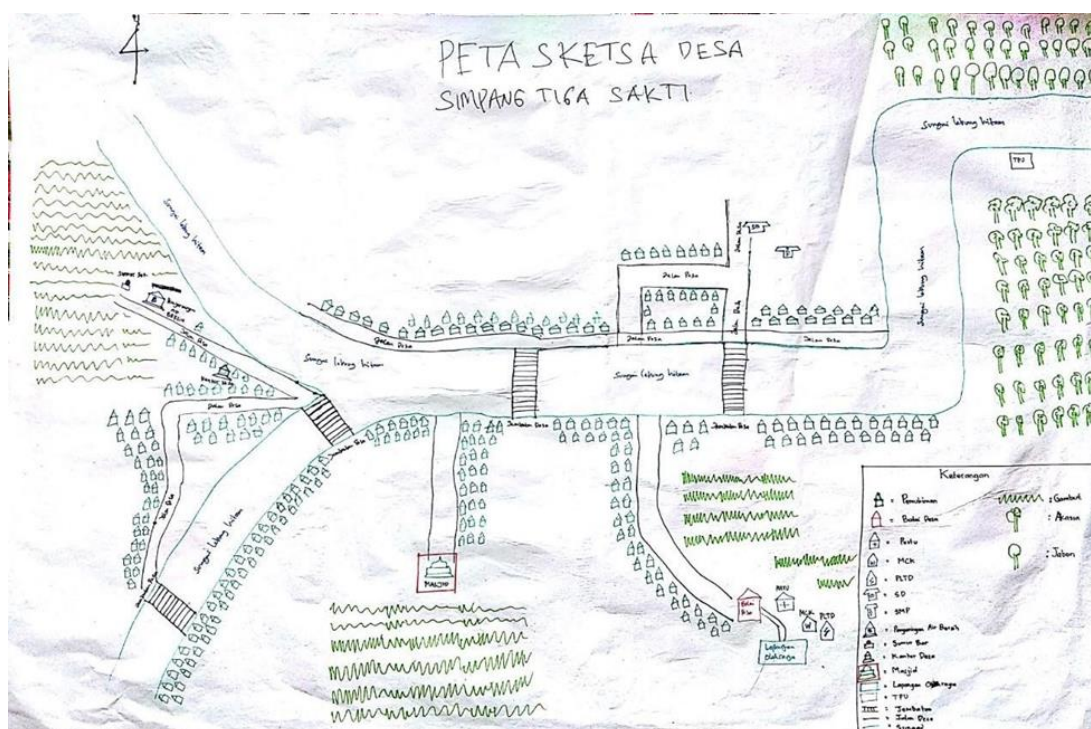 4
PETA SKETSA DESA
SIMPANG TIGA SAKTI
Sungai lebung hitam
TPU
Sungai lebung hitam
Sumur Bor
Jalan Desa
SD
Jalan Desa
Jalan Desa
Jalan Desa
Jalan Desa
Jalan Desa
Sungai lebung hitam
Sungai lebung hitam
Sungai lebung hitam
Jalan Desa
Jembatan Desa
Jembatan Desa
Jalan Desa
Sungai lebung hitam
MASJID
Balai Desa
MCK
PLTD
Lapangan
Olahraga
Keterangan
= Pemukiman
= Balai Desa
= Pustu
= MCK
= PLTD
= SD
= SMP
= Penyaringan Air Bersih
= Sumur Bor
= Kantor Desa
= Masjid
= Lapangan Olahraga
= TPU
= Jembatan
= Jalan Desa
= Sungai
: Gambut
: Akasia
: Jabon